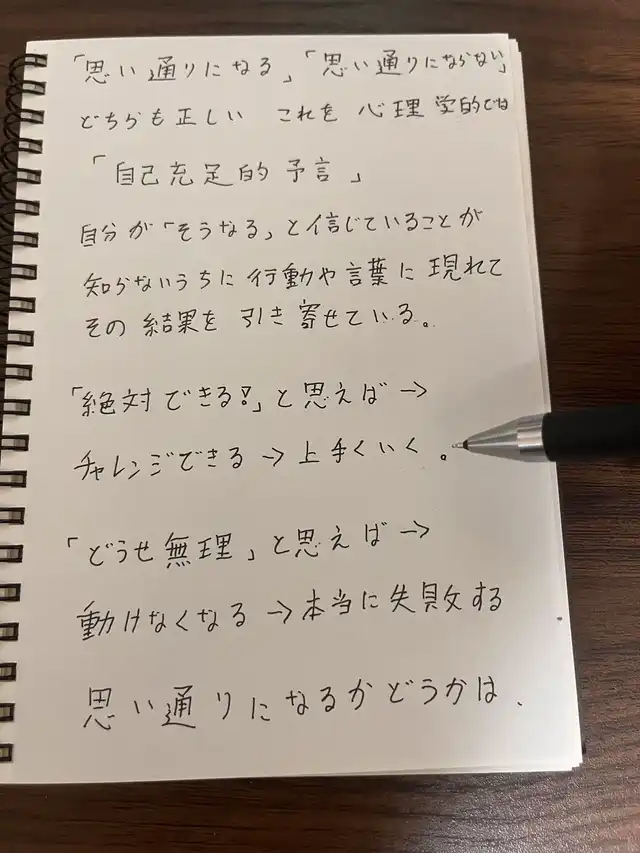 「思い通りになる」「思い通りにならない」
どちらも正しい これを 心理学的では
「自己充足的予言」
自分が「そうなる」と信じていることが
知らないうちに行動や言葉に現れて
その結果を引き寄せている。
「絶対できる!」と思えば→
チャレンジできる→上手くいく。
「どうせ無理」と思えば→
動けなくなる→本当に失敗する
思い通りになるかどうかは、